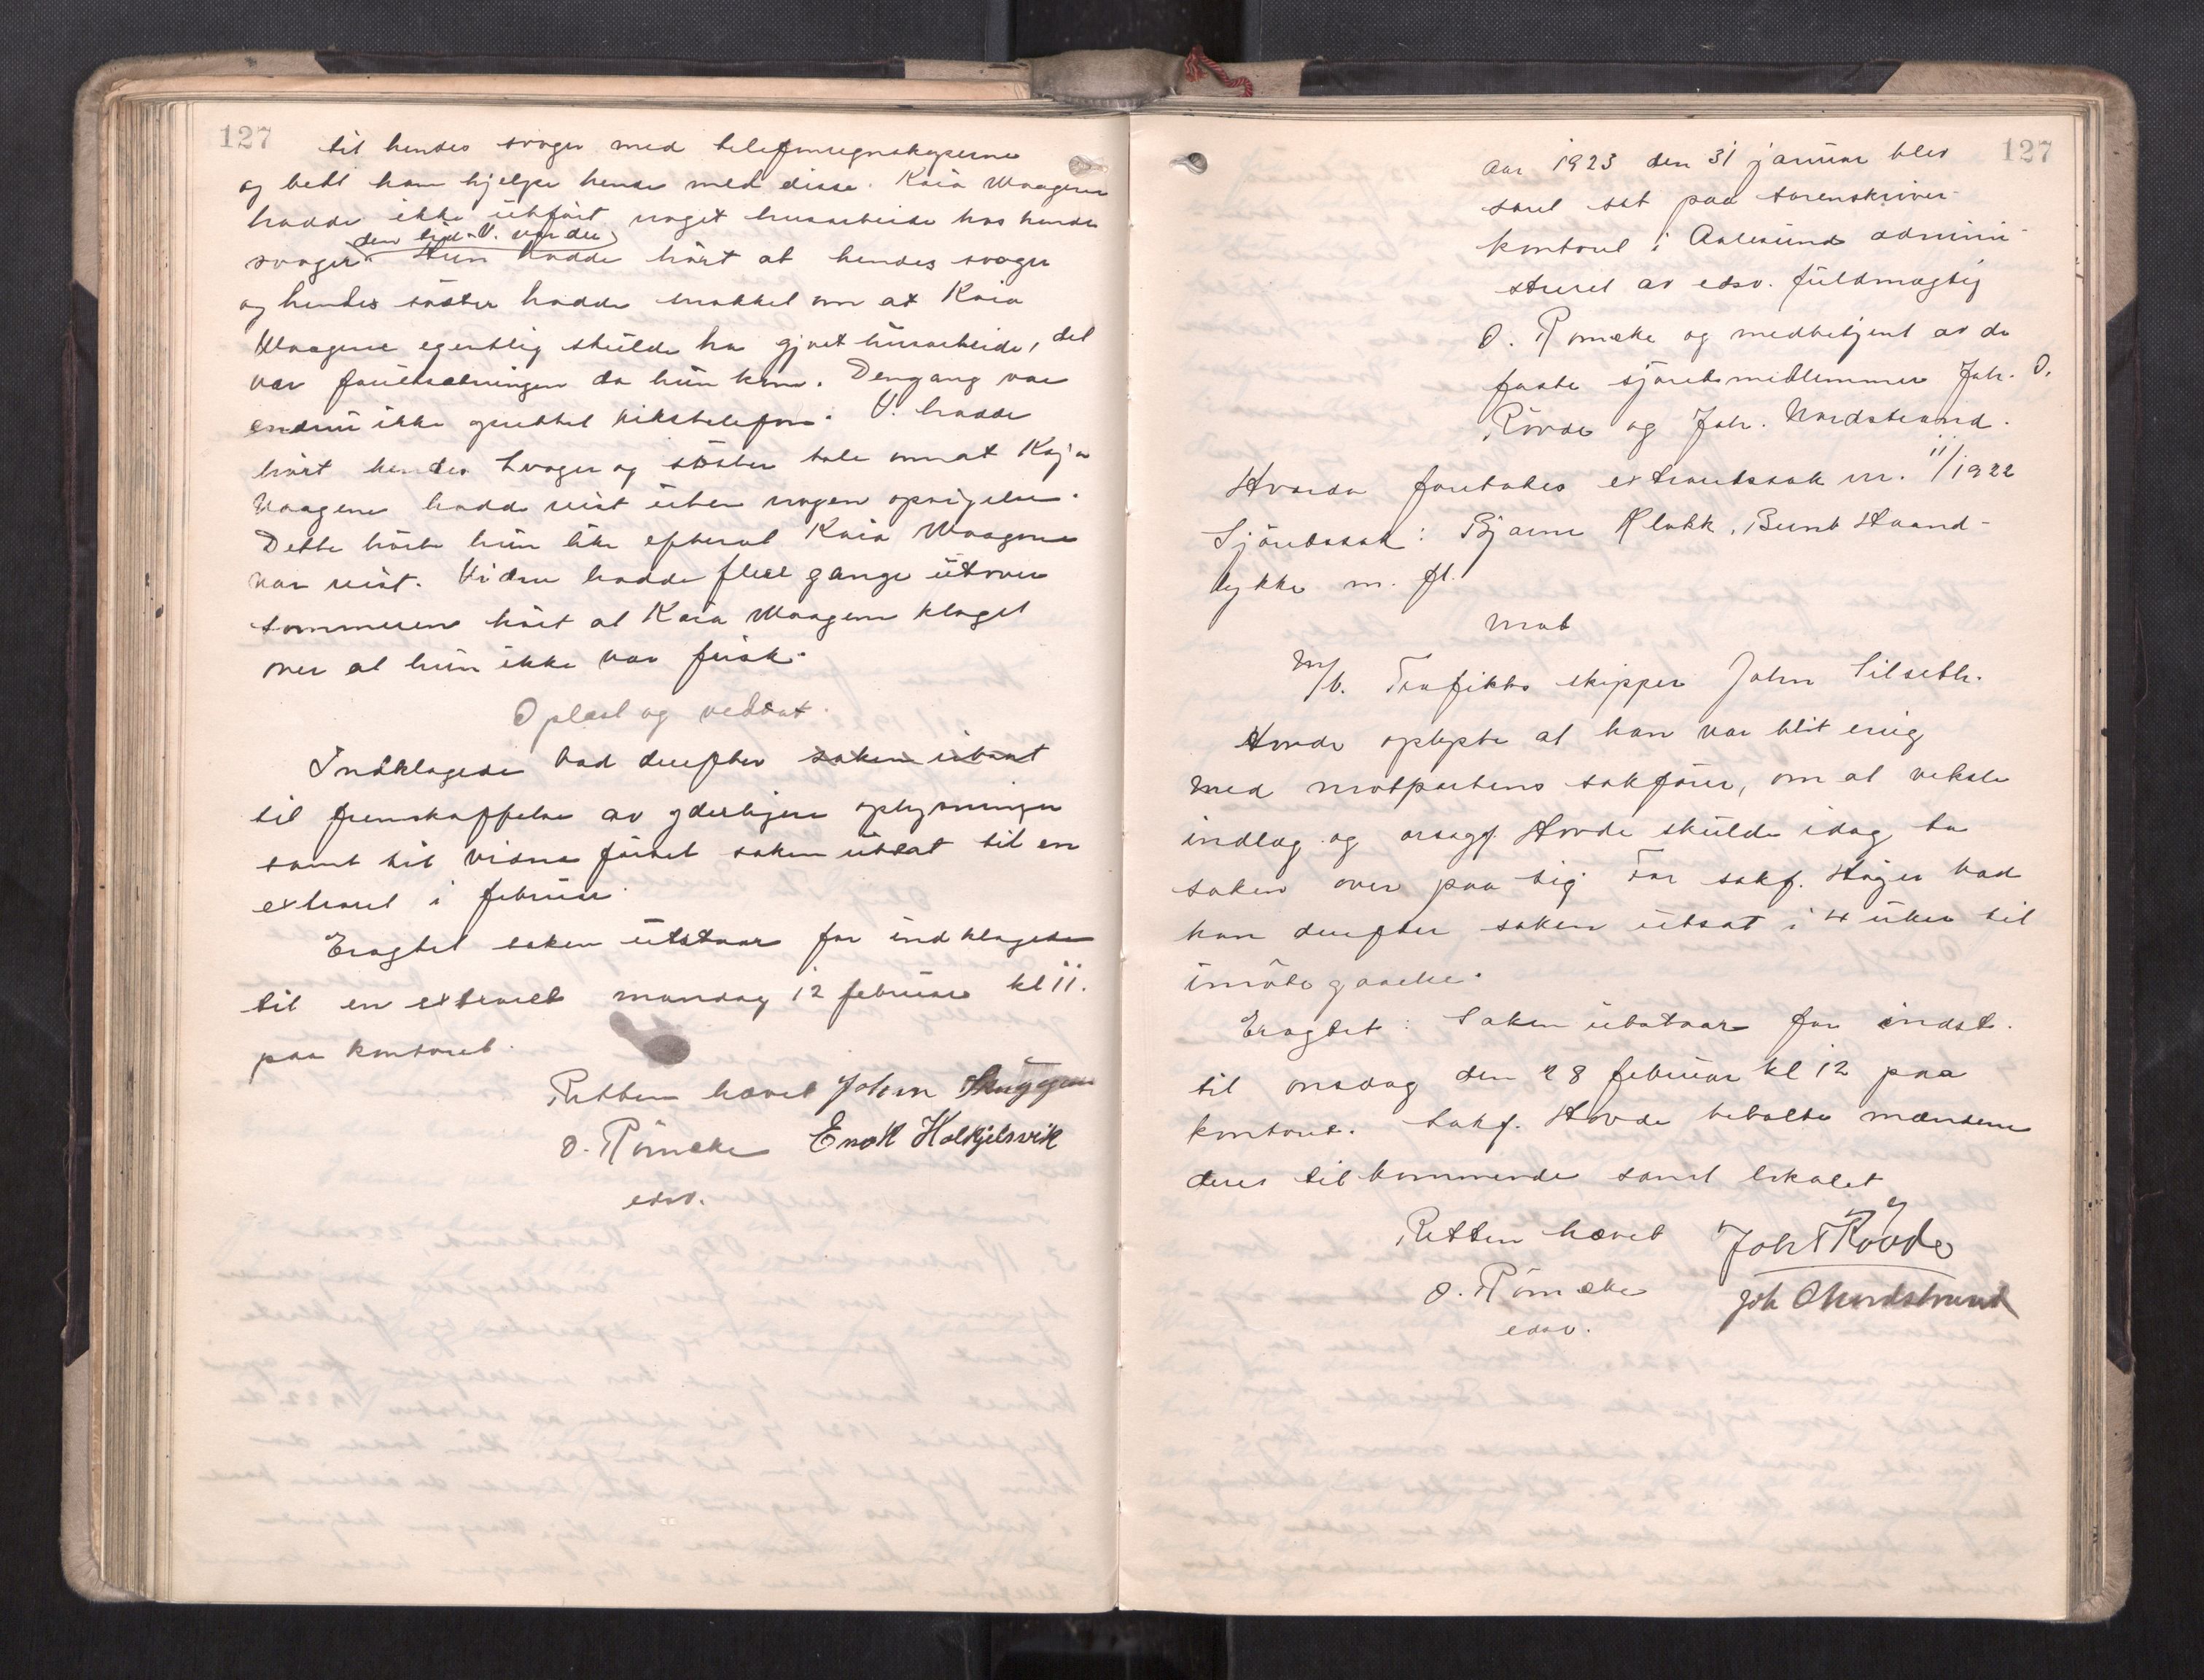 127
til hendes svoger med telefonregnskaperne
og bedt ham hjelpe hende med disse. Kaia Waagene
hadde ikke utført noget husarbeide hos hendes
den tid V. var der
svoger. Hun hadde hørt at hendes svoger
og hendes søster hadde snakket om at Kaia
Waagene egentlig skulde ha gjort husarbeide, det
var forutsætningen da hun kom. Dengang var
endnu ikke oprettet rikstelefon. V. hadde
hørt hendes svoger og søster tale om at Kaja
Waagene hadde reist uten nogen opsigelse.
Dette hørte hun like efterat Kaia Waagene
var reist. Vidnet hadde flere gange utover
sommeren hørt at Kaia Waagene klaget
over at hun ikke var frisk.
Oplæst og vedtat.
Indklagede bad derefter saken utsat
til fremskaffelse av yderligere oplysninger
samt til vidneførsel saken utsat til en
extraret i februar.
Eragtet saken utstaar for indklagede
til en extraret mandag 12 februar kl 11.
paa kontoret.
Retten hævet John Skuggen
O. Römcke Enok Holkjelsvik
edsv.
127
Aar 1923 den 31 januar blev
søret sat paa sorenskriver-
kontoret i Aalesund admini-
streret av edsv. fuldmægtig
O. Römcke og medbetjent av de
faste sjøretsmedlemmer Joh. O.
Rövde og Joh. Nordstrand.
Hvorda foretokes extraretssak nr. 11/1922
Sjøretssak: Bjarne Klokk, Bernt Haand-
lykke m. fl.
mot
M/b. Trafikks skipper John Silseth.
Hovde oplyste at han var blit enig
med motpartens sakfører, om at veksle
indlæg og orsagf. Hovde skulde idag ta
saken over paa sig For sakf. Höyer bad
han derefter saken utsat i 4 uker til
imøtegaaelse.
Eragtet: Saken utstaar for indst.
til onsdag den 28 februar kl 12 paa
kontoret. Sakf. Hovde betalte mændene
deres tilkommende samt lokalet
Retten hævet Joh O Rövde
O. Römcke Joh O Nordstrand
edsv.